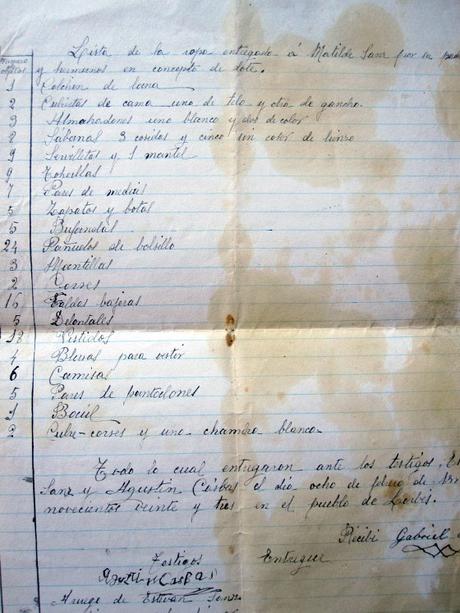 Lista de la ropa entregada á Matilde Sanz por su
Numero
y hermanos en concepto de dote.
1 Colchon de lana
2 Cubiertas de cama una de tela y otra de gancho.
3 Almohadones uno blanco y dos de color
8 Sábanas 3 cosidas y cinco sin coser de lienzo
9 Servilletas y 1 mantel
9 Tohallas
7 Pares de medias
5 Zapatos y botas
5 Bufandas
24 Pañuelos de bolsillo
3 Mantillas
2 Corses
16 Faldas bajeras
5 Delantales
Vestidos
4 Blusas para vestir
6 Camisas
5 Pares de pantalones
1 Baúl
2 Cubre-corses y una chambra blanca
Todo lo cual entregaron ante los testigos
Sanz y Agustin Córbas el día ocho de
novecientos veinte y tres en el pueblo de
Recibi Gabriel
Testigos Entregué
Aruego de Estevan Sanz